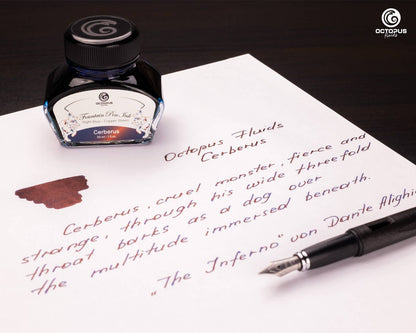 OCTOPUS
fluids
OCTOPUS
Fountain Pen Ink
Cerberus
Octopus Fluids
Cerberus
Cerberus, cruel monster, fierce and
strange, through his wide threefold
throat barks as a dog over
the multitude immersed beneath.
„The Inferno" von Dante Alighi